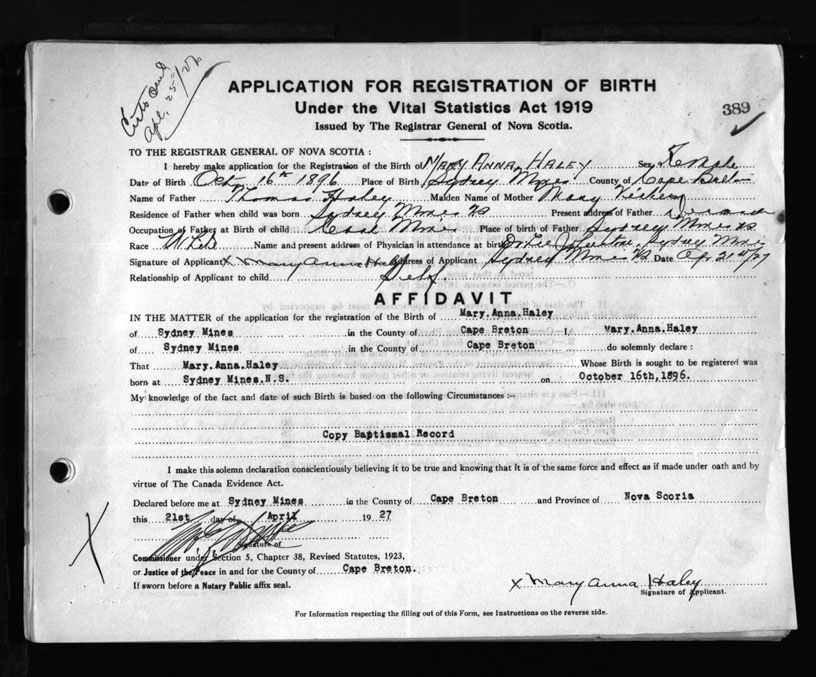 APPLICATION FOR REGISTRATION OF BIRTH
Under the Vital Statistics Act 1919
389
Issued by The Registrar General of Nova Scotia.
TO THE REGISTRAR GENERAL OF NOVA SCOTIA :
I hereby make application for the Registration of the Birth of Mary Anna Haley Sex Female
Date of Birth Oct 16th 1896 Place of Birth Sydney Mines County of Cape Breton
Name of Father Thomas Haley Maiden Name of Mother Mary
Residence of Father when child was born Sydney Mines NS Present address of Father
Occupation of Father at Birth of child Coal Mine Place of birth of Father Sydney Mines NS
Race White Name and present address of Physician in attendance at birth Sydney Mines
Signature of Applicant X Mary Anna Haley Address of Applicant Sydney Mines NS Date Apr 21st/27
Relationship of Applicant to child Self.
AFFIDAVIT
IN THE MATTER of the application for the registration of the Birth of Mary.Anna.Haley
of Sydney Mines in the County of Cape Breton I, Mary.Anna.Haley
of Sydney Mines in the County of Cape Breton do solemnly declare :
That Mary.Anna.Haley Whose Birth is sought to be registered was
born at Sydney Mines.N.S. on October 16th,1896.
My knowledge of the fact and date of such Birth is based on the following Circumstances :-
Copy Baptismal Record
I make this solemn declaration conscientiously believing it to be true and knowing that it is of the same force and effect as if made under oath and by
virtue of The Canada Evidence Act.
Declared before me at Sydney Mines in the County of Cape Breton and Province of Nova Scoria
this 21st day of April 1927
Signature of
Commissioner under Section 5, Chapter 38, Revised Statutes, 1923,
or Justice of the Peace in and for the County of Cape Breton.
If sworn before a Notary Public affix seal.
X Mary Anna Haley
Signature of Applicant.
For Information respecting the filling out of this Form, see Instructions on the reverse side.